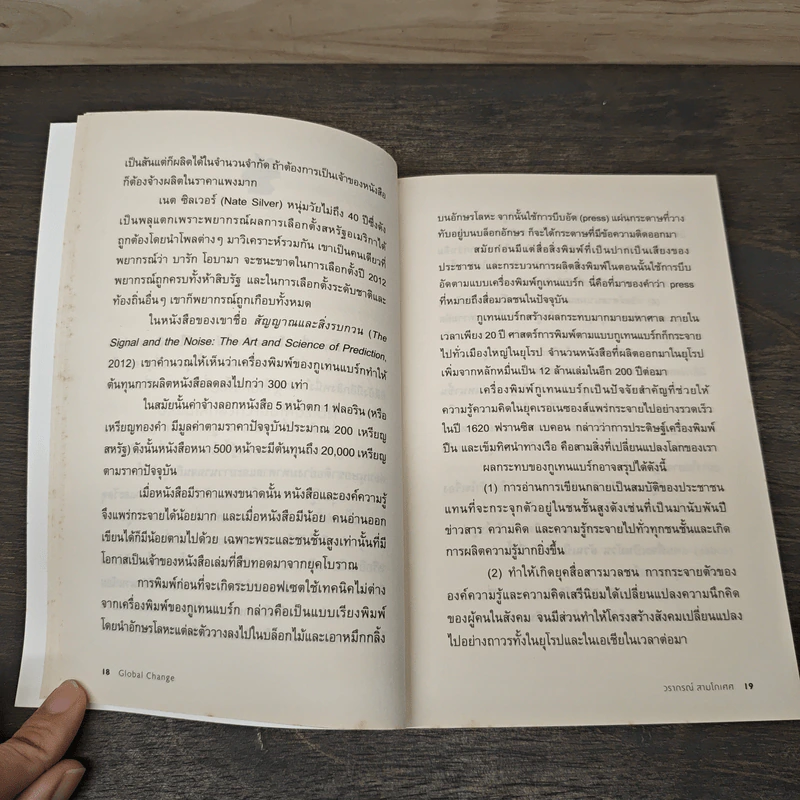 เป็นสันแต่ก็ผลิตได้ในจำนวนจำกัด ถ้าต้องการเป็นเจ้าของหนังสือ
ก็ต้องจ้างผลิตในราคาแพงมาก
เนต ซิลเวอร์ (Nate Silver) หนุ่มวัยไม่ถึง 40 ปีซึ่งดัง
เป็นพลุแตกเพราะพยากรณ์ผลการเลือกตั้งสหรัฐอเมริกาได้
ถูกต้องโดยนำโพลต่างๆ มาวิเคราะห์รวมกัน เขาเป็นคนเดียวที่
พยากรณ์ว่า บารัก โอบามา จะชนะขาดในการเลือกตั้งปี 2012
พยากรณ์ถูกครบทั้งห้าสิบรัฐ และในการเลือกตั้งระดับชาติและ
ท้องถิ่นอื่นๆ เขาก็พยากรณ์ถูกเกือบทั้งหมด
ในหนังสือของเขาชื่อ สัญญาณและสิ่งรบกวน (The
Signal and the Noise: The Art and Science of Prediction,
2012) เขาคำนวณให้เห็นว่าเครื่องพิมพ์ของกูเทนแบร์กทำให้
ต้นทุนการผลิตหนังสือลดลงไปกว่า 300 เท่า
ในสมัยนั้นค่าจ้างลอกหนังสือ 5 หน้าตก 1 ฟลอริน (หรือ
เหรียญทองคำ มีมูลค่าตามราคาปัจจุบันประมาณ 200 เหรียญ
สหรัฐ) ดังนั้นหนังสือหนา 500 หน้าจะมีต้นทุนถึง 20,000 เหรียญ
ตามราคาปัจจุบัน
เมื่อหนังสือมีราคาแพงขนาดนั้น หนังสือและองค์ความรู้
จึงแพร่กระจายได้น้อยมาก และเมื่อหนังสือมีน้อย คนอ่านออก
เขียนได้ก็มีน้อยตามไปด้วย เฉพาะพระและชนชั้นสูงเท่านั้นที่มี
โอกาสเป็นเจ้าของหนังสือเล่มที่สืบทอดมาจากยุคโบราณ
การพิมพ์ก่อนที่จะเกิดระบบออฟเซตใช้เทคนิคไม่ต่าง
จากเครื่องพิมพ์ของกูเทนแบร์ก กล่าวคือเป็นแบบเรียงพิมพ์
โดยนำอักษรโลหะแต่ละตัววางลงไปในบล็อกไม้และเอาหมึกกลิ้ง
18 Global Change
บนอักษรโลหะ จากนั้นใช้การบีบอัด (press) แผ่นกระดาษที่วาง
ทับอยู่บนบล็อกอักษร ก็จะได้กระดาษที่มีข้อความติดออกมา
สมัยก่อนมีแต่สื่อสิ่งพิมพ์ที่เป็นปากเป็นเสียงของ
ประชาชน และกระบวนการผลิตสิ่งพิมพ์ในตอนนั้นใช้การบีบ
อัดตามแบบเครื่องพิมพ์กูเทนแบร์ก นี่คือที่มาของคำว่า press
ที่หมายถึงสื่อมวลชนในปัจจุบัน
กูเทนแบร์กสร้างผลกระทบมากมายมหาศาล ภายใน
เวลาเพียง 20 ปี ศาสตร์การพิมพ์ตามแบบกูเทนแบร์กก็กระจาย
ไปทั่วเมืองใหญ่ในยุโรป จำนวนหนังสือที่ผลิตออกมาในยุโรป
เพิ่มจากหลักหมื่นเป็น 12 ล้านเล่มในอีก 200 ปีต่อมา
เครื่องพิมพ์กูเทนแบร์กเป็นปัจจัยสำคัญที่ช่วยให้
ความรู้ความคิดในยุคเรอเนซองส์แพร่กระจายไปอย่างรวดเร็ว
ในปี 1620 ฟรานซิส เบคอน กล่าวว่าการประดิษฐ์เครื่องพิมพ์
ปืน และเข็มทิศนำทางเรือ คือสามสิ่งที่เปลี่ยนแปลงโลกของเรา
ผลกระทบของกูเทนแบร์กอาจสรุปได้ดังนี้
(1) การอ่านการเขียนกลายเป็นสมบัติของประชาชน
แทนที่จะกระจุกตัวอยู่ในชนชั้นสูงดังเช่นที่เป็นมานับพันปี
ข่าวสาร ความคิด และความรู้กระจายไปทั่วทุกชนชั้นและเกิด
การผลิตความรู้มากยิ่งขึ้น
(2) ทำให้เกิดยุคสื่อสารมวลชน การกระจายตัวของ
องค์ความรู้และความคิดเสรีนิยมได้เปลี่ยนแปลงความนึกคิด
ของผู้คนในสังคม จนมีส่วนทำให้โครงสร้างสังคมเปลี่ยนแปลง
ไปอย่างถาวรทั้งในยุโรปและในเอเชียในเวลาต่อมา
วรากรณ์ สามโกเศศ 19